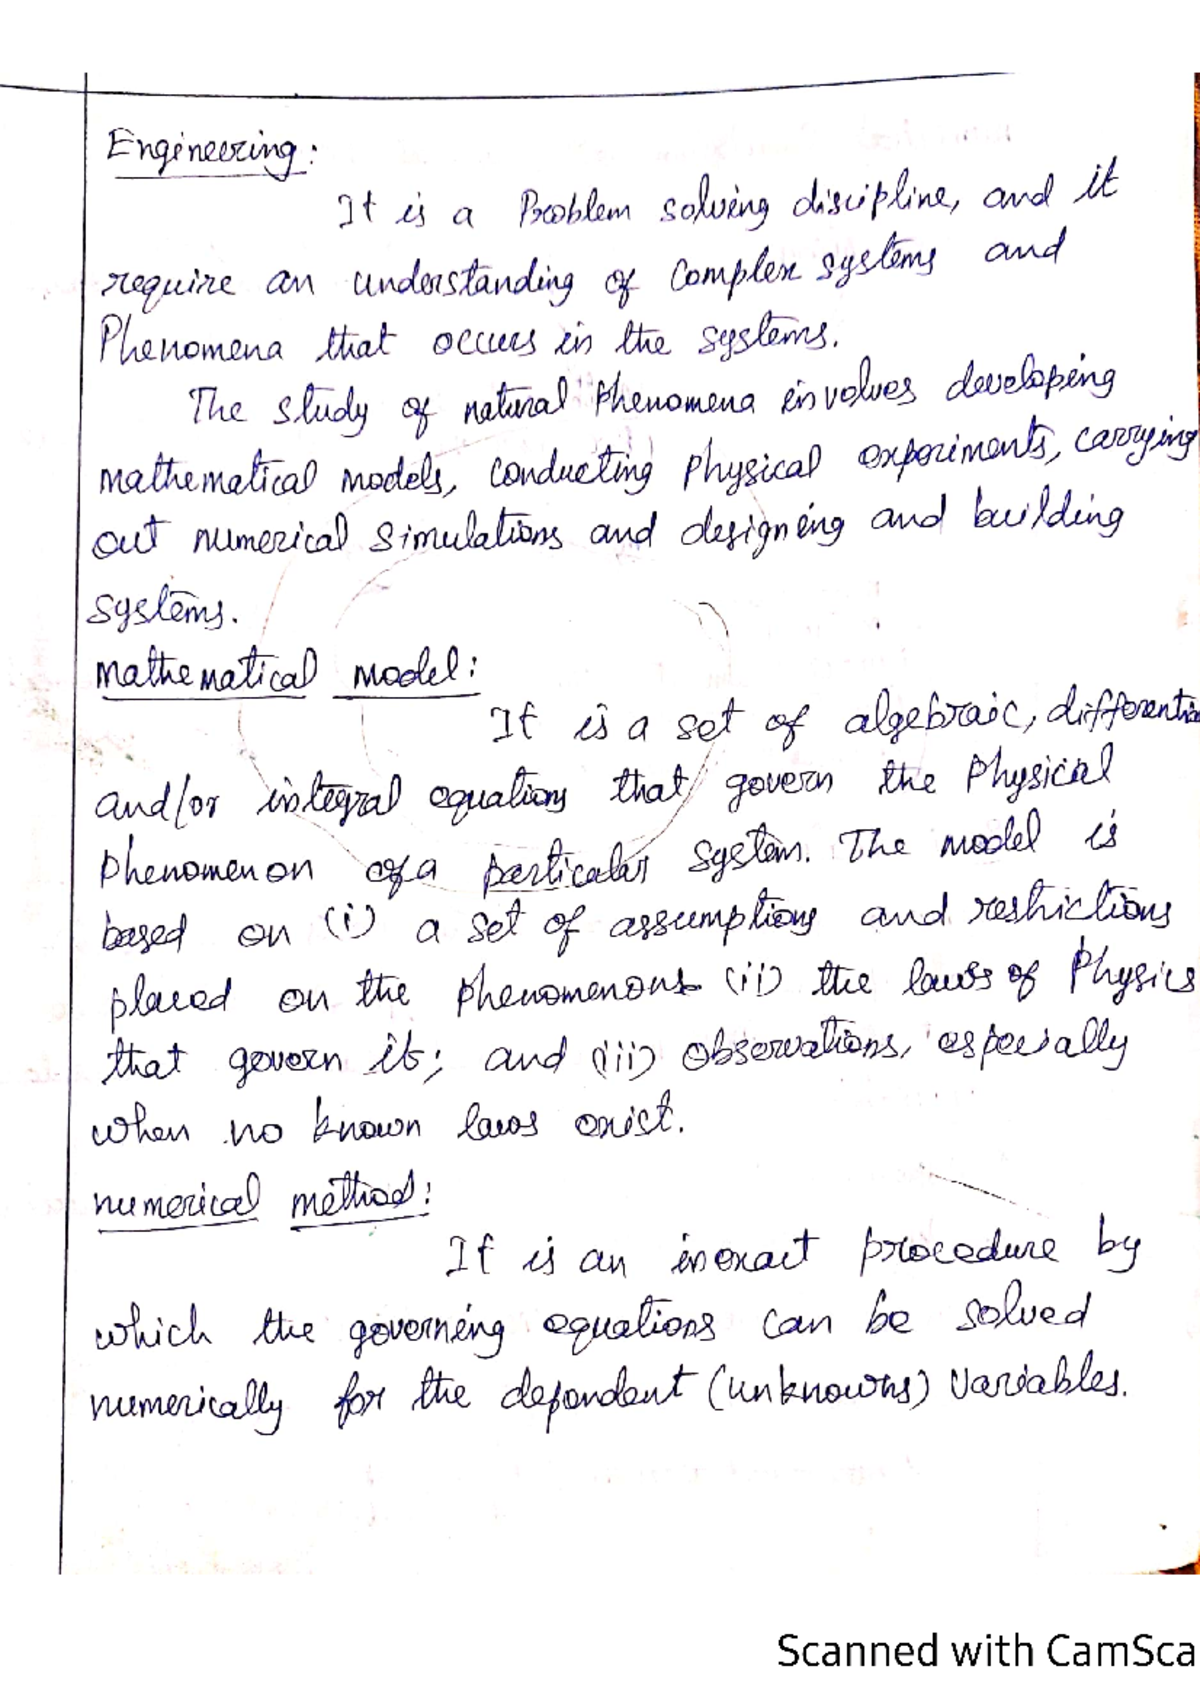 Engineering:
It is a Problem solving discipline, and it
require an understanding of Complex systems and
Phenomena that occurs in the systems.
The study of natural Phenomena involves developing
mathematical models, conducting physical experiments, carrying
out numerical simulations and designing and building
systems.
Mathematical model:
It is a set of algebraic, differentia
and/or integral equations that govern the Physical
phenomenon of a particular system. The model is
based on (i) a set of assumptions and restrictions
placed on the phenomenons (ii) the laws of Physics
that govern it; and (iii) observations, especially
when no known laws exist.
numerical method:
It is an inexact procedure by
which the governing equations can be solved
numerically for the dependent (unknowns) variables.
Scanned with CamSca